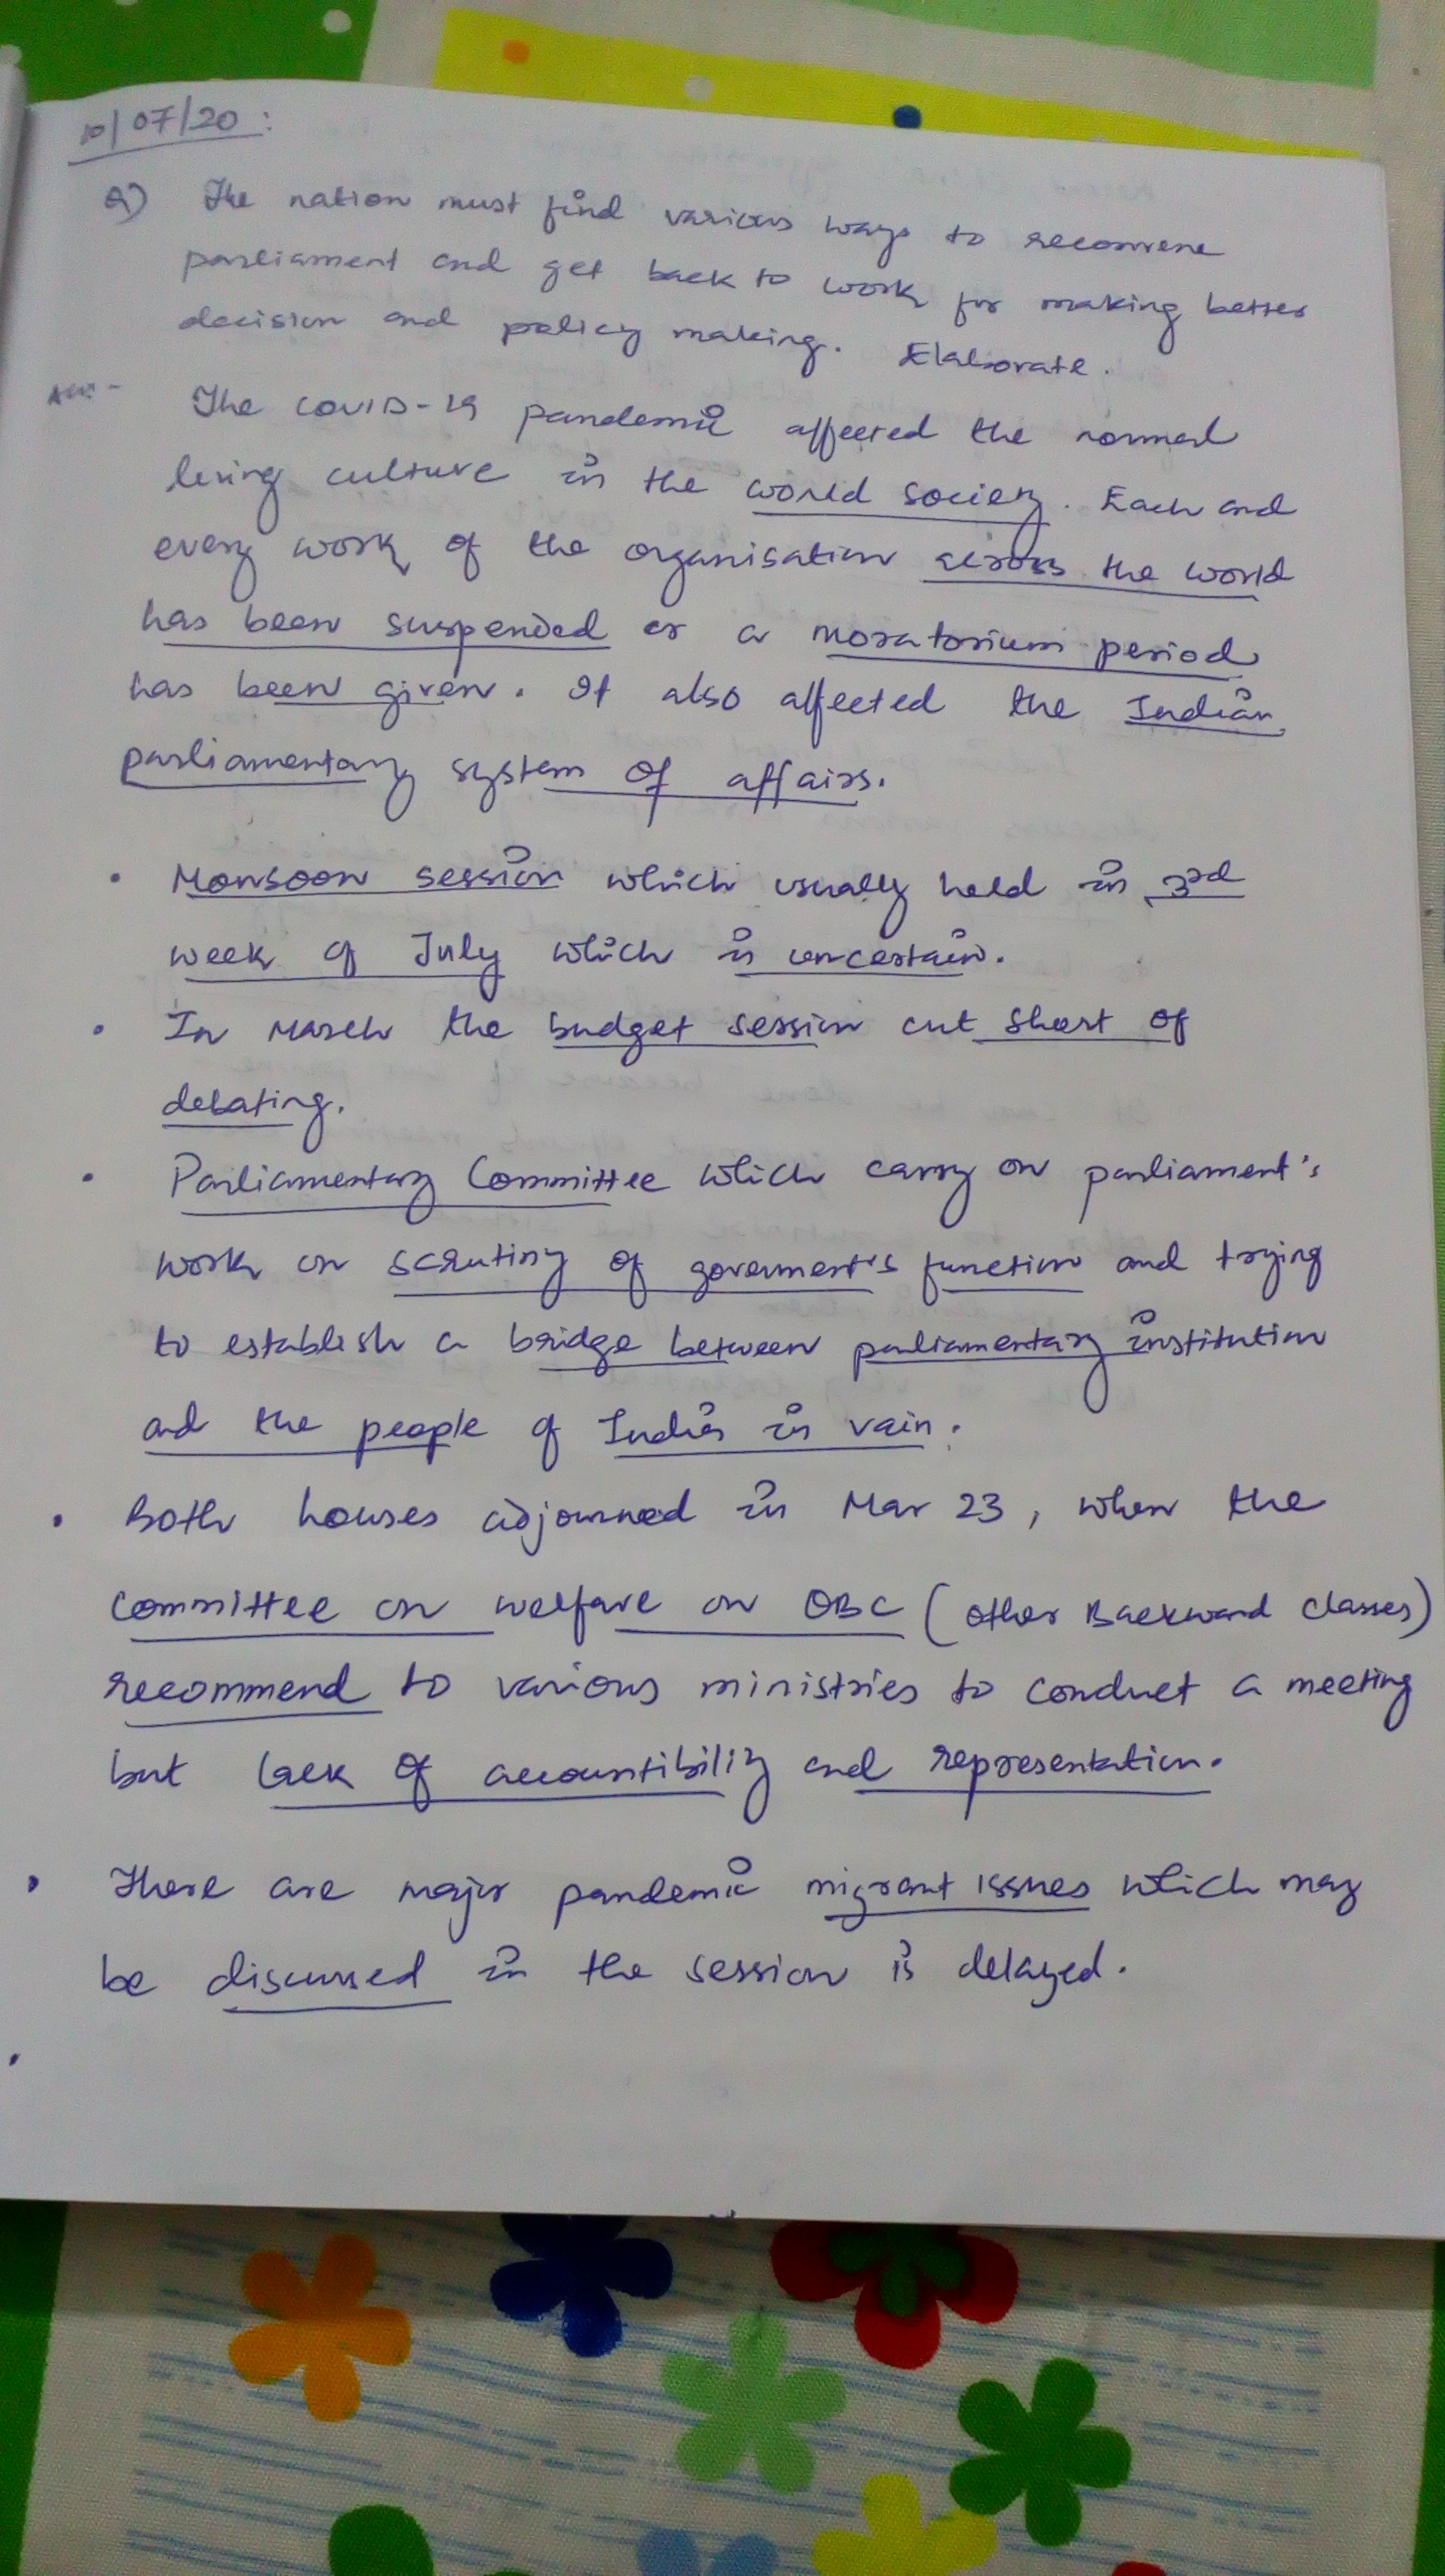 10/07/20 :
Q) The nation must find various ways to reconvene
parliament and get back to work for making better
decision and policy making. Elaborate.
Ans:- The COVID-19 pandemic affected the normal
living culture in the world society. Each and
every work of the organisation across the world
has been suspended or a moratorium period
has been given. It also affected the Indian
parliamentary system of affairs.
• Monsoon session which usually held in 3rd
week of July which is uncertain.
• In March the budget session cut short of
debating.
• Parliamentary Committee which carry on parliament's
work on scrutiny of goverment's function and trying
to establish a bridge between parliamentary institution
and the people of India in vain.
• Both houses adjourned in Mar 23, when the
committee on welfare on OBC (Other Backward Classes)
recommend to various ministries to conduct a meeting
but lack of accountibility and representation.
• There are major pandemic migrant issues which may
be discussed in the session is delayed.
•